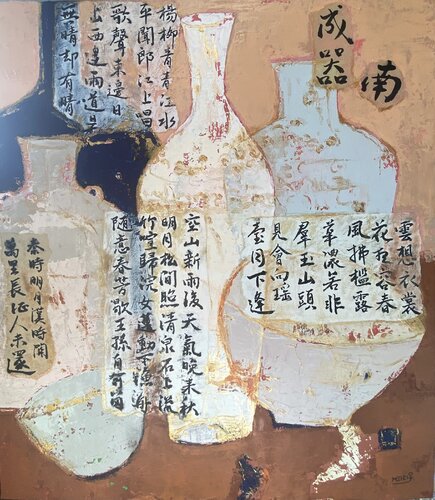 南
成器
雲想衣裳
花想容春
風拂檻露
華濃若非
羣玉山頭
見會向瑶
臺月下逢
楊柳青青江水
平聞郎江上唱
歌聲東邊日
出西邊雨道是
無晴却有晴
空山新雨後天氣晚来秋
明月松間照清泉石上流
竹喧歸浣女蓮動下漁舟
隨意春芳歇王孫自可留
秦時明月漢時関
萬里長征人未還